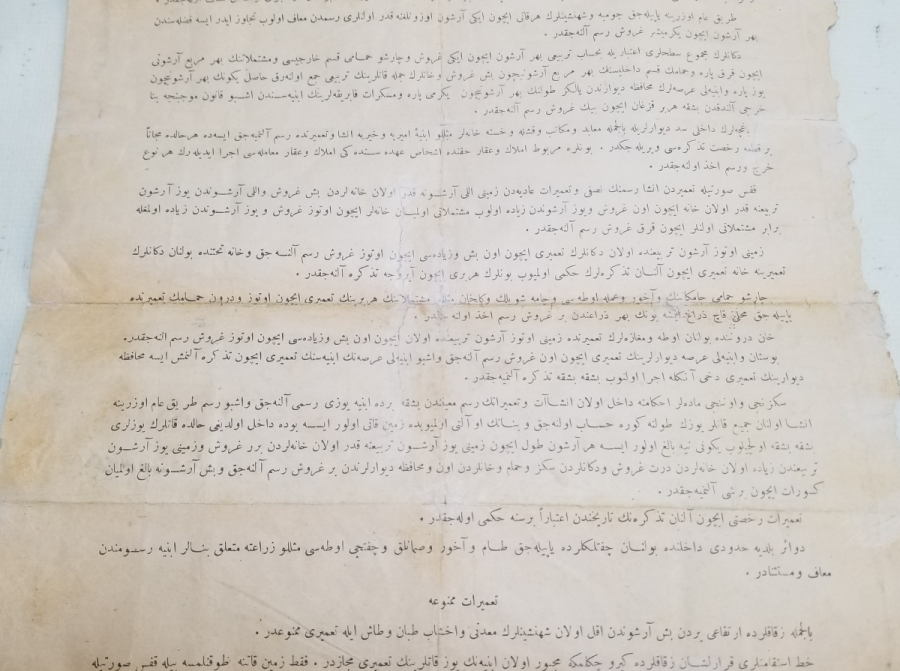 طريق عام اوزرينه ياپيله‌جق جومبه و شهنشينلرك هرقاتى ايچون ايكى آرشون اوزونلغنه قدر اولنلرى رسمدن معاف اولوب تجاوز ايدر ايسه فضله‌سندن
بهر آرشون ايچون يكرميشر غروش رسم آلنه‌جقدر .
دكانلرك مجموع سطحلرى اعتباريله بحساب تربيعى بهر آرشون ايچون ايكى غروش و چارشو حمامى قسم خارجيسى و مشتملاتنك بهر مربع آرشونى
ايچون قرق پاره و حمامك قسم داخليسنك بهر مربع آرشونيچون بش غروش و خانلرك جمله قاتلرينك تربيعى جمع اولنه‌رق حاصل يكونك بهر آرشونيچون
يوز پاره و ابنيه‌لى عرصه‌لرك محافظه ديوارندن يالكز طولنك بهر آرشونيچون يكرمى پاره و مسكرات فابريقه‌لرينك ابنيه‌سندن اشبو قانون موجبنجه بنا
خرجى آلندقدن بشقه هر بر قزغان ايچون بيك غروش رسم آلنه‌جقدر .
باغچه‌لرك داخلى سد ديوارلريله بالجمله معابد و مكاتب و قشله و خسته خانه‌لر مثللو ابنيهٔ اميريه و خيريه انشا و تعميرنده رسم آلنميه‌جق ايسه‌ده هر حالده مجاناً
بر قطعه رخصت تذكره‌سى ويريله‌جكدر . بونلره مربوط املاك و عقار حقنده اشخاص عهده‌سنده‌كى املاك و عقار معامله‌سى اجرا ايديله‌رك هر نوع
خرج و رسم اخذ اولنه‌جقدر .
قفس صورتيله تعميردن انشا رسمنك نصفى و تعميرات عاديه‌دن زمينى اللى آرشونه قدر اولان خانه‌لردن بش غروش و اللى آرشوندن يوز آرشون
تربيعنه قدر اولان خانه ايچون اون غروش و يوز آرشوندن زياده اولوب مشتملاتى اولميان خانه‌لر ايچون اوتوز غروش و يوز آرشوندن زياده اولمغله
برابر مشتملاتى اولنلر ايچون قرق غروش رسم آلنه‌جقدر .
زمينى اوتوز آرشون تربيعنده اولان دكانلرك تعميرى ايچون اون بش و زياده‌سى ايچون اوتوز غروش رسم آلنه‌جق و خانه تحتنده بولنان دكانلرك
تعميرينه خانه تعميرى ايچون آلنان تذكره‌لرك حكمى اولميوب بونلرك هربرى ايچون آيروجه تذكره آلنه‌جقدر .
چارشو حمامى جامكانينك و آخور و عمله اوطه‌سى و جامه‌شويلك و كلخان مثللو مشتملاتنك هربرينك تعميرى ايچون اوتوز و درون حمامك تعميرنده
ياپيله‌جق محللى قاچ ذراع ايسه بونك بهر ذراعندن بر غروش رسم اخذ اولنه‌جقدر .
خان دروننده بولنان اوطه و مغازه‌لرك تعميرنده زمينى اوتوز آرشون تربيعنده اولان ايچون اون بش و زياده‌سى ايچون اوتوز غروش رسم آلنه‌جقدر .
بوستان و ابنيه‌لى عرصه ديوارلرينك تعميرى ايچون اون غروش رسم آلنه‌جق و اشبو ابنيه‌لى عرصه‌نك ابنيه‌سنك تعميرى ايچون تذكره آلنمش ايسه محافظه
ديوارينك تعميرى دخى آنكله اجرا اولنوب بشقه بشقه تذكره آلنميه‌جقدر .
سكزنجى و اوننجى ماده‌لر احكامنه داخل اولان انشاآت و تعميراتك رسم معيناندن بشقه برده ابنيه يوزى رسمى آلنه‌جق و اشبو رسم طريق عام اوزرينه
انشا اولنان جميع قاتلر يوزك طولنه كوره حساب اولنه‌جق و بناتك او آلتى اولميوبده زمين قاتى اولور ايسه بوده داخل اولديغى حالده قاتلرك يوزلرى
بشقه بشقه اولچيلوب يكونى نيه بالغ اولور ايسه هر آرشون طول ايچون زمينى يوز آرشون تربيعنه قدر اولان خانه‌لردن برر غروش و زمينى يوز آرشون
تربيعندن زياده اولان خانه‌لردن درت غروش و دكانلردن سكز و حمام و خانلردن اون و محافظه ديوارلرندن بر غروش رسم آلنه‌جق و بش آرشونه بالغ اولميان
كسورات ايچون بر شى آلنميه‌جقدر .
تعميرات رخصتى ايچون آلنان تذكره‌نك تاريخندن اعتباراً بر سنه حكمى اوله‌جقدر .
دوائر بلديه حدودى داخلنده بولنان چفتلكلرده ياپيله‌جق طام و آخور و صمانلق و چفتجى اوطه‌سى مثللو زراعته متعلق بنالر ابنيه رسومندن
معاف و مستثنادر .
تعميرات ممنوعه
بالجمله زقاقلرده ارتفاعى بردن بش آرشوندن اقل اولان شهنشينلرك معدنى و اخشاب طبان و طاش ايله تعميرى ممنوعدر .
خط استقامتلرى قرارلشان زقاقلرده كيرو چكلمكه مجبور اولان ابنيه‌نك يوز قاتلرينك تعميرى مجازدر . فقط زمين قاتنه طوقنلمسه بيله قفس صورتيله